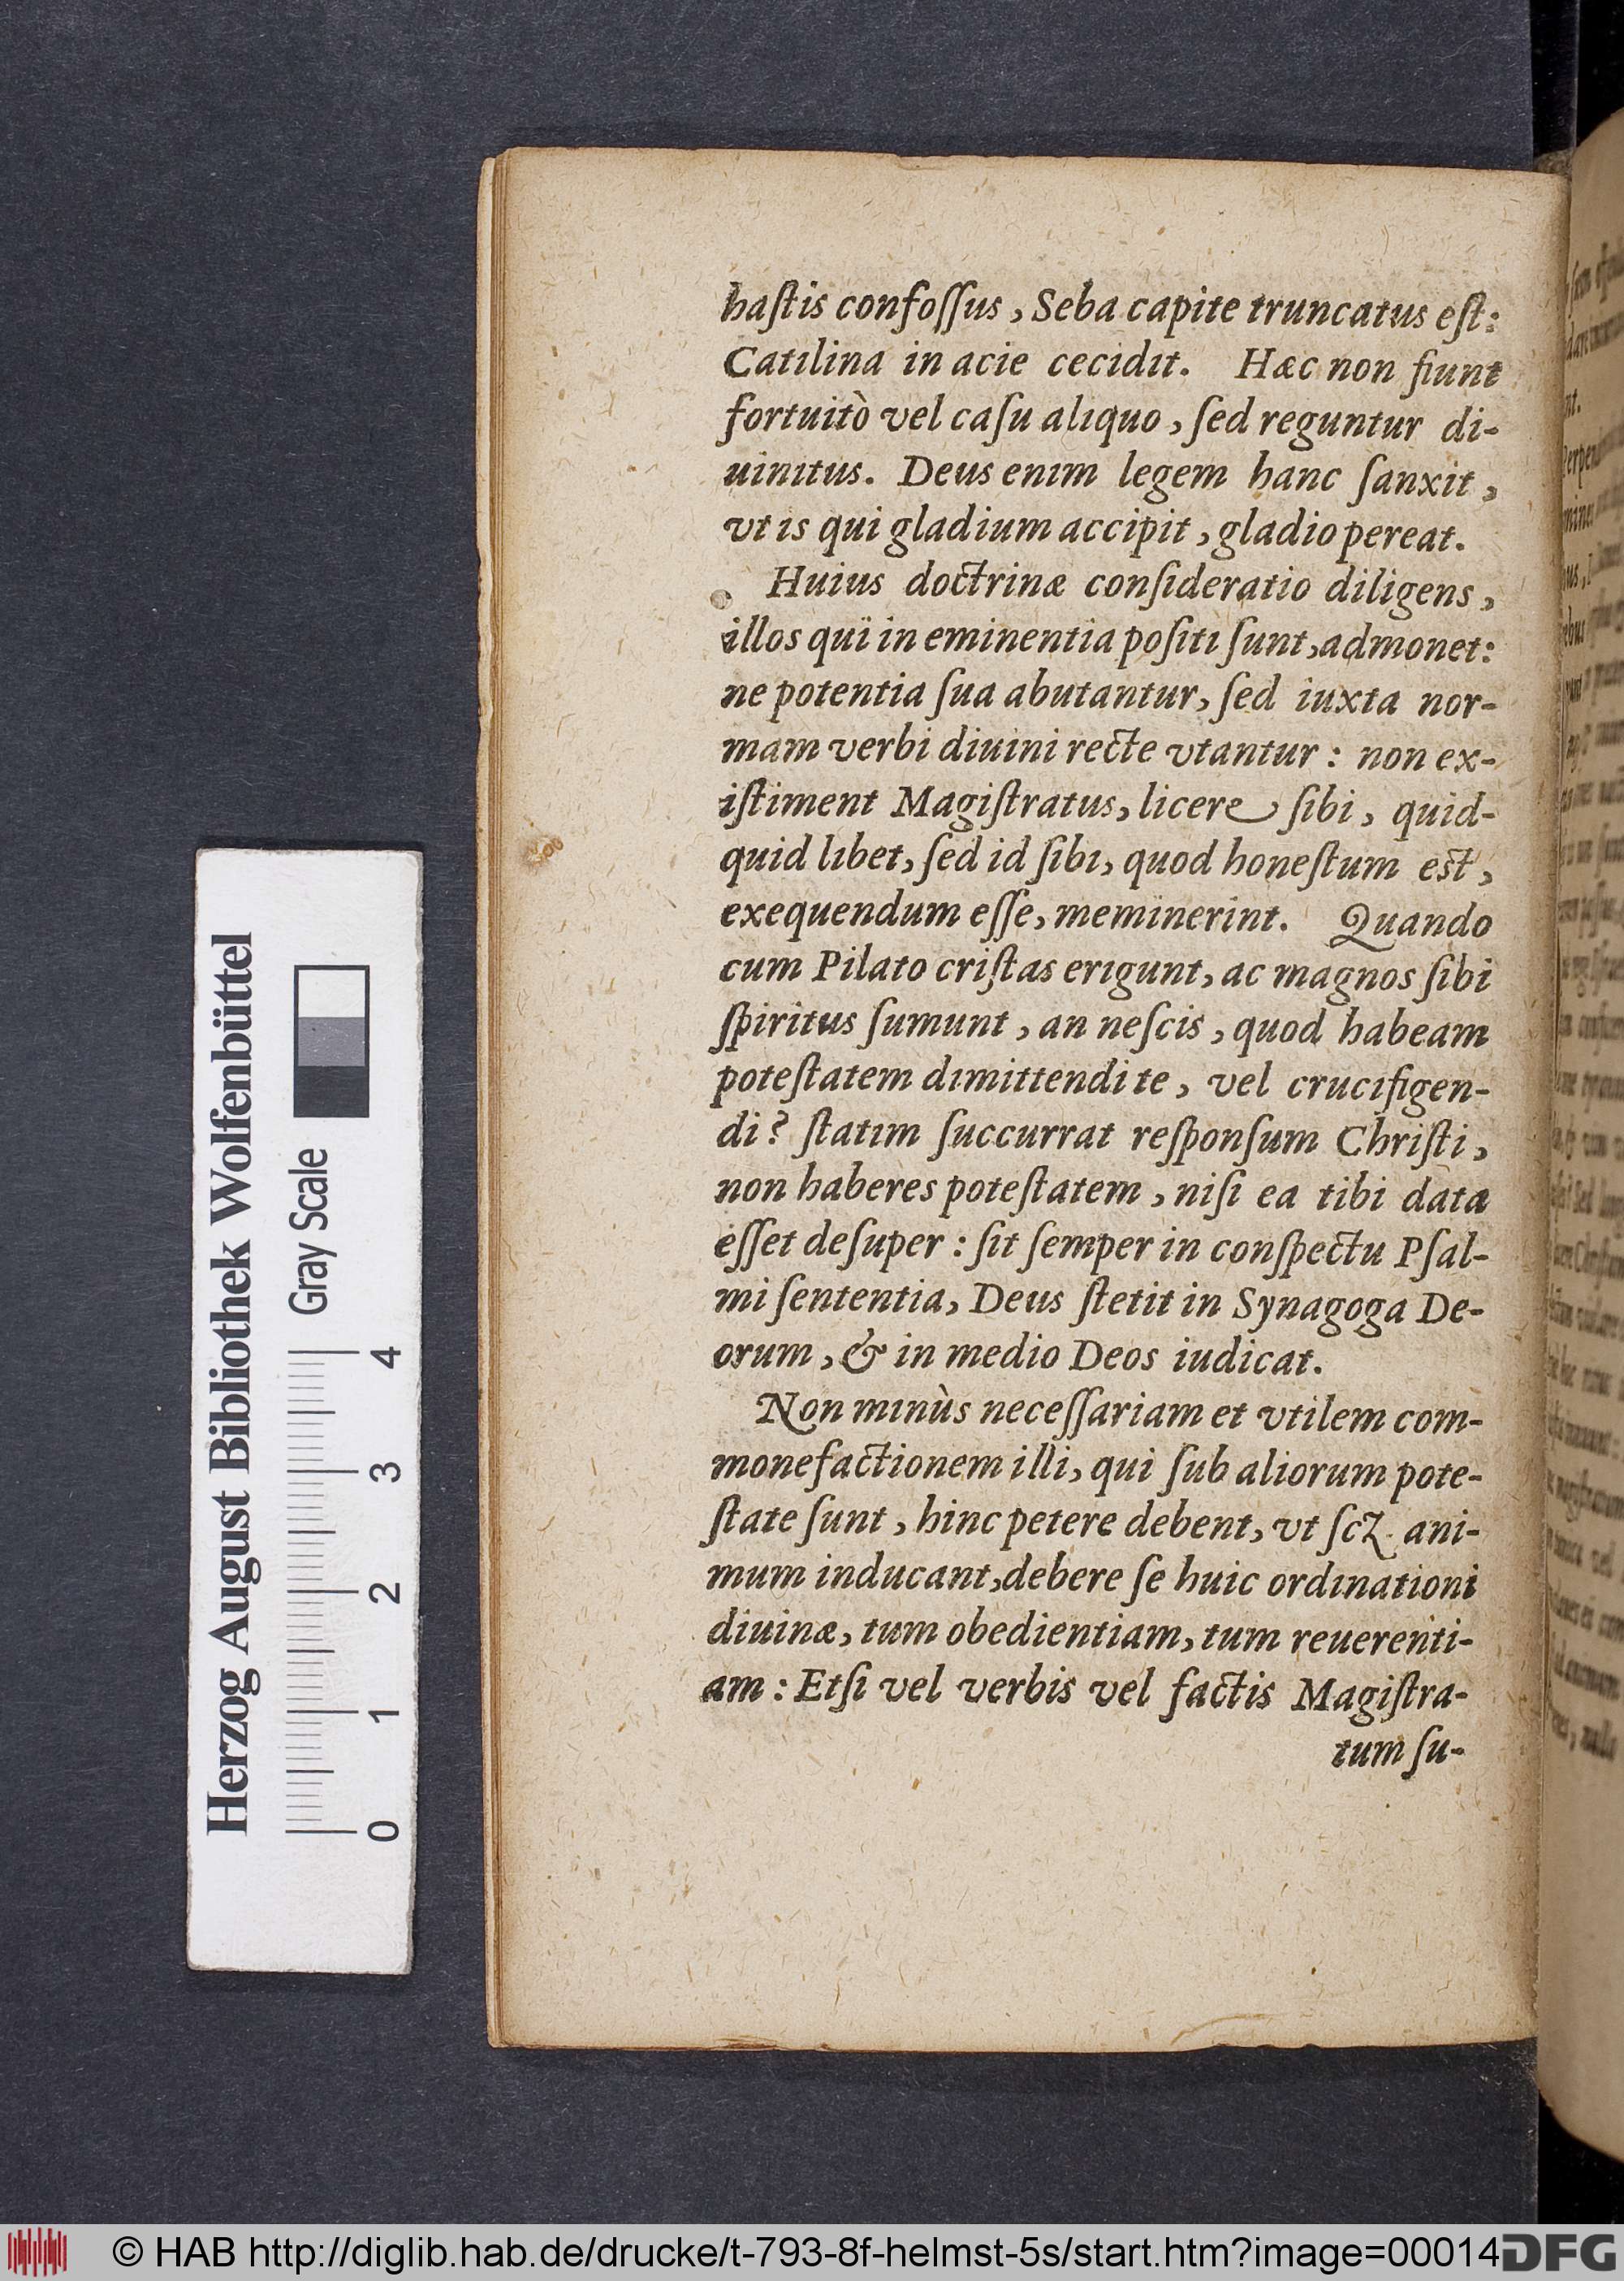 haſtis confoſſus, Seba capite truncatus eſt:
Catilina in acie cecidit. Hæc non fiunt
fortuitò vel caſu aliquo, ſed reguntur di-
uinitus. Deus enim legem hanc ſanxit,
vt is qui gladium accipit, gladio pereat.
Huius doctrinæ conſideratio diligens,
illos qui in eminentia poſiti ſunt, admonet:
ne potentia ſua abutantur, ſed iuxta nor-
mam verbi diuini recte vtantur: non ex-
iſtiment Magiſtratus, licere ſibi, quid-
quid libet, ſed id ſibi, quod honeſtum est,
exequendum eſſe, meminerint. Quando
cum Pilato criſtas erigunt, ac magnos ſibi
ſpiritus ſumunt, an neſcis, quod habeam
poteſtatem dimittendi te, vel crucifigen-
di? ſtatim ſuccurrat reſponſum Chriſti,
non haberes poteſtatem, niſi ea tibi data
eſſet deſuper: ſit ſemper in conſpectu Pſal-
mi ſententia, Deus ſtetit in Synagoga De-
orum, & in medio Deos iudicat.
Non minùs neceſſariam et vtilem com-
monefactionem illi, qui ſub aliorum pote-
ſtate ſunt, hinc petere debent, vt ſcz. ani-
mum inducant, debere ſe huic ordinationi
diuinæ, tum obedientiam, tum reuerenti-
am: Etſi vel verbis vel factis Magiſtra-
tum ſu-
Herzog August Bibliothek Wolfenbüttel
Gray Scale
0 1 2 3 4
© HAB http://diglib.hab.de/drucke/t-793-8f-helmst-5s/start.htm?image=00014
DFG